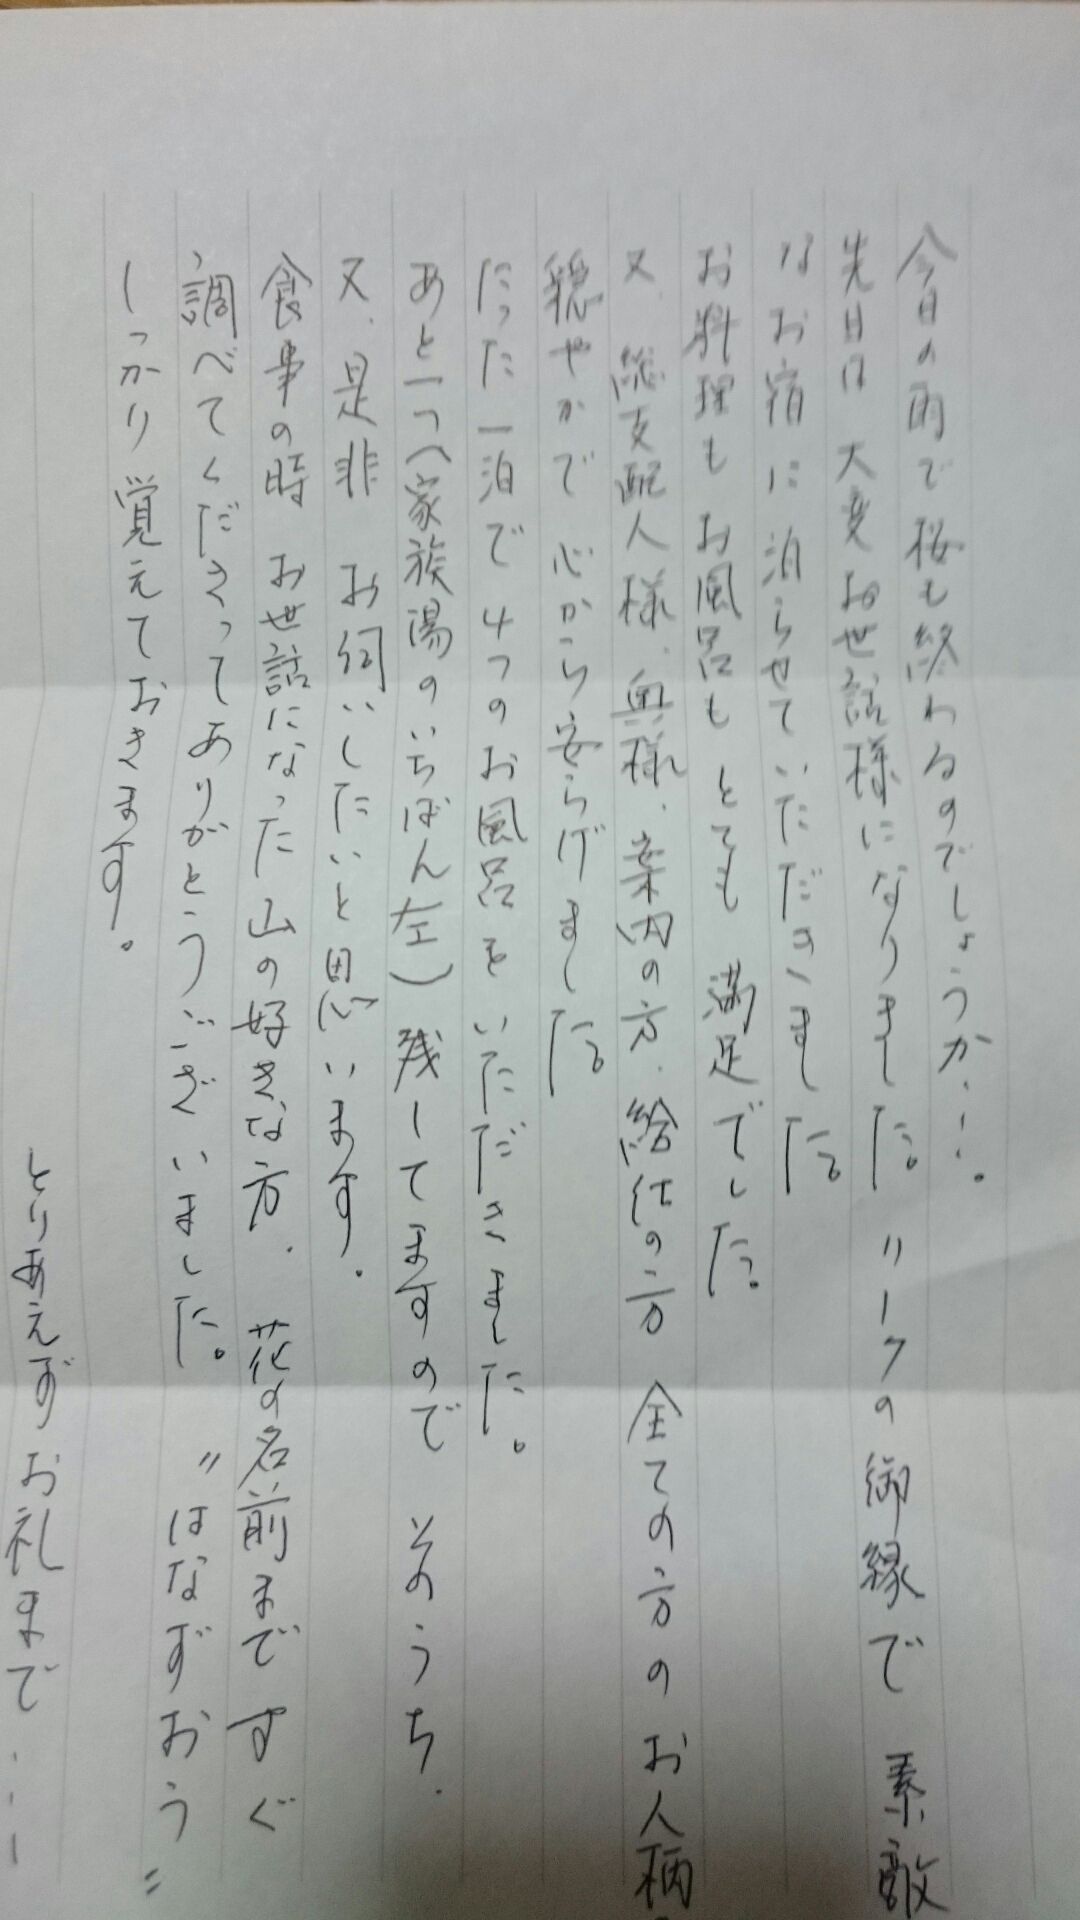 今日の雨で桜も終わるのでしょうか…。
先日は 大変お世話様になりました。 リークの御縁で 素敵
なお宿に泊らせていただきました。
お料理も お風呂も とても 満足でした。
又、総支配人様、奥様、案内の方、給仕の方 全ての方の お人柄
穏やかで 心から安らげました。
たった一泊で 4つのお風呂を いただきました。
あと一つ(家族湯のいちばん左) 残してますので そのうち、
又、是非 お伺いしたいと思います。
食事の時 お世話になった 山の好きな方、 花の名前まで すぐ
調べてくださってありがとうございました。 〝はなずおう〟
しっかり覚えておきます。
とりあえずお礼まで…